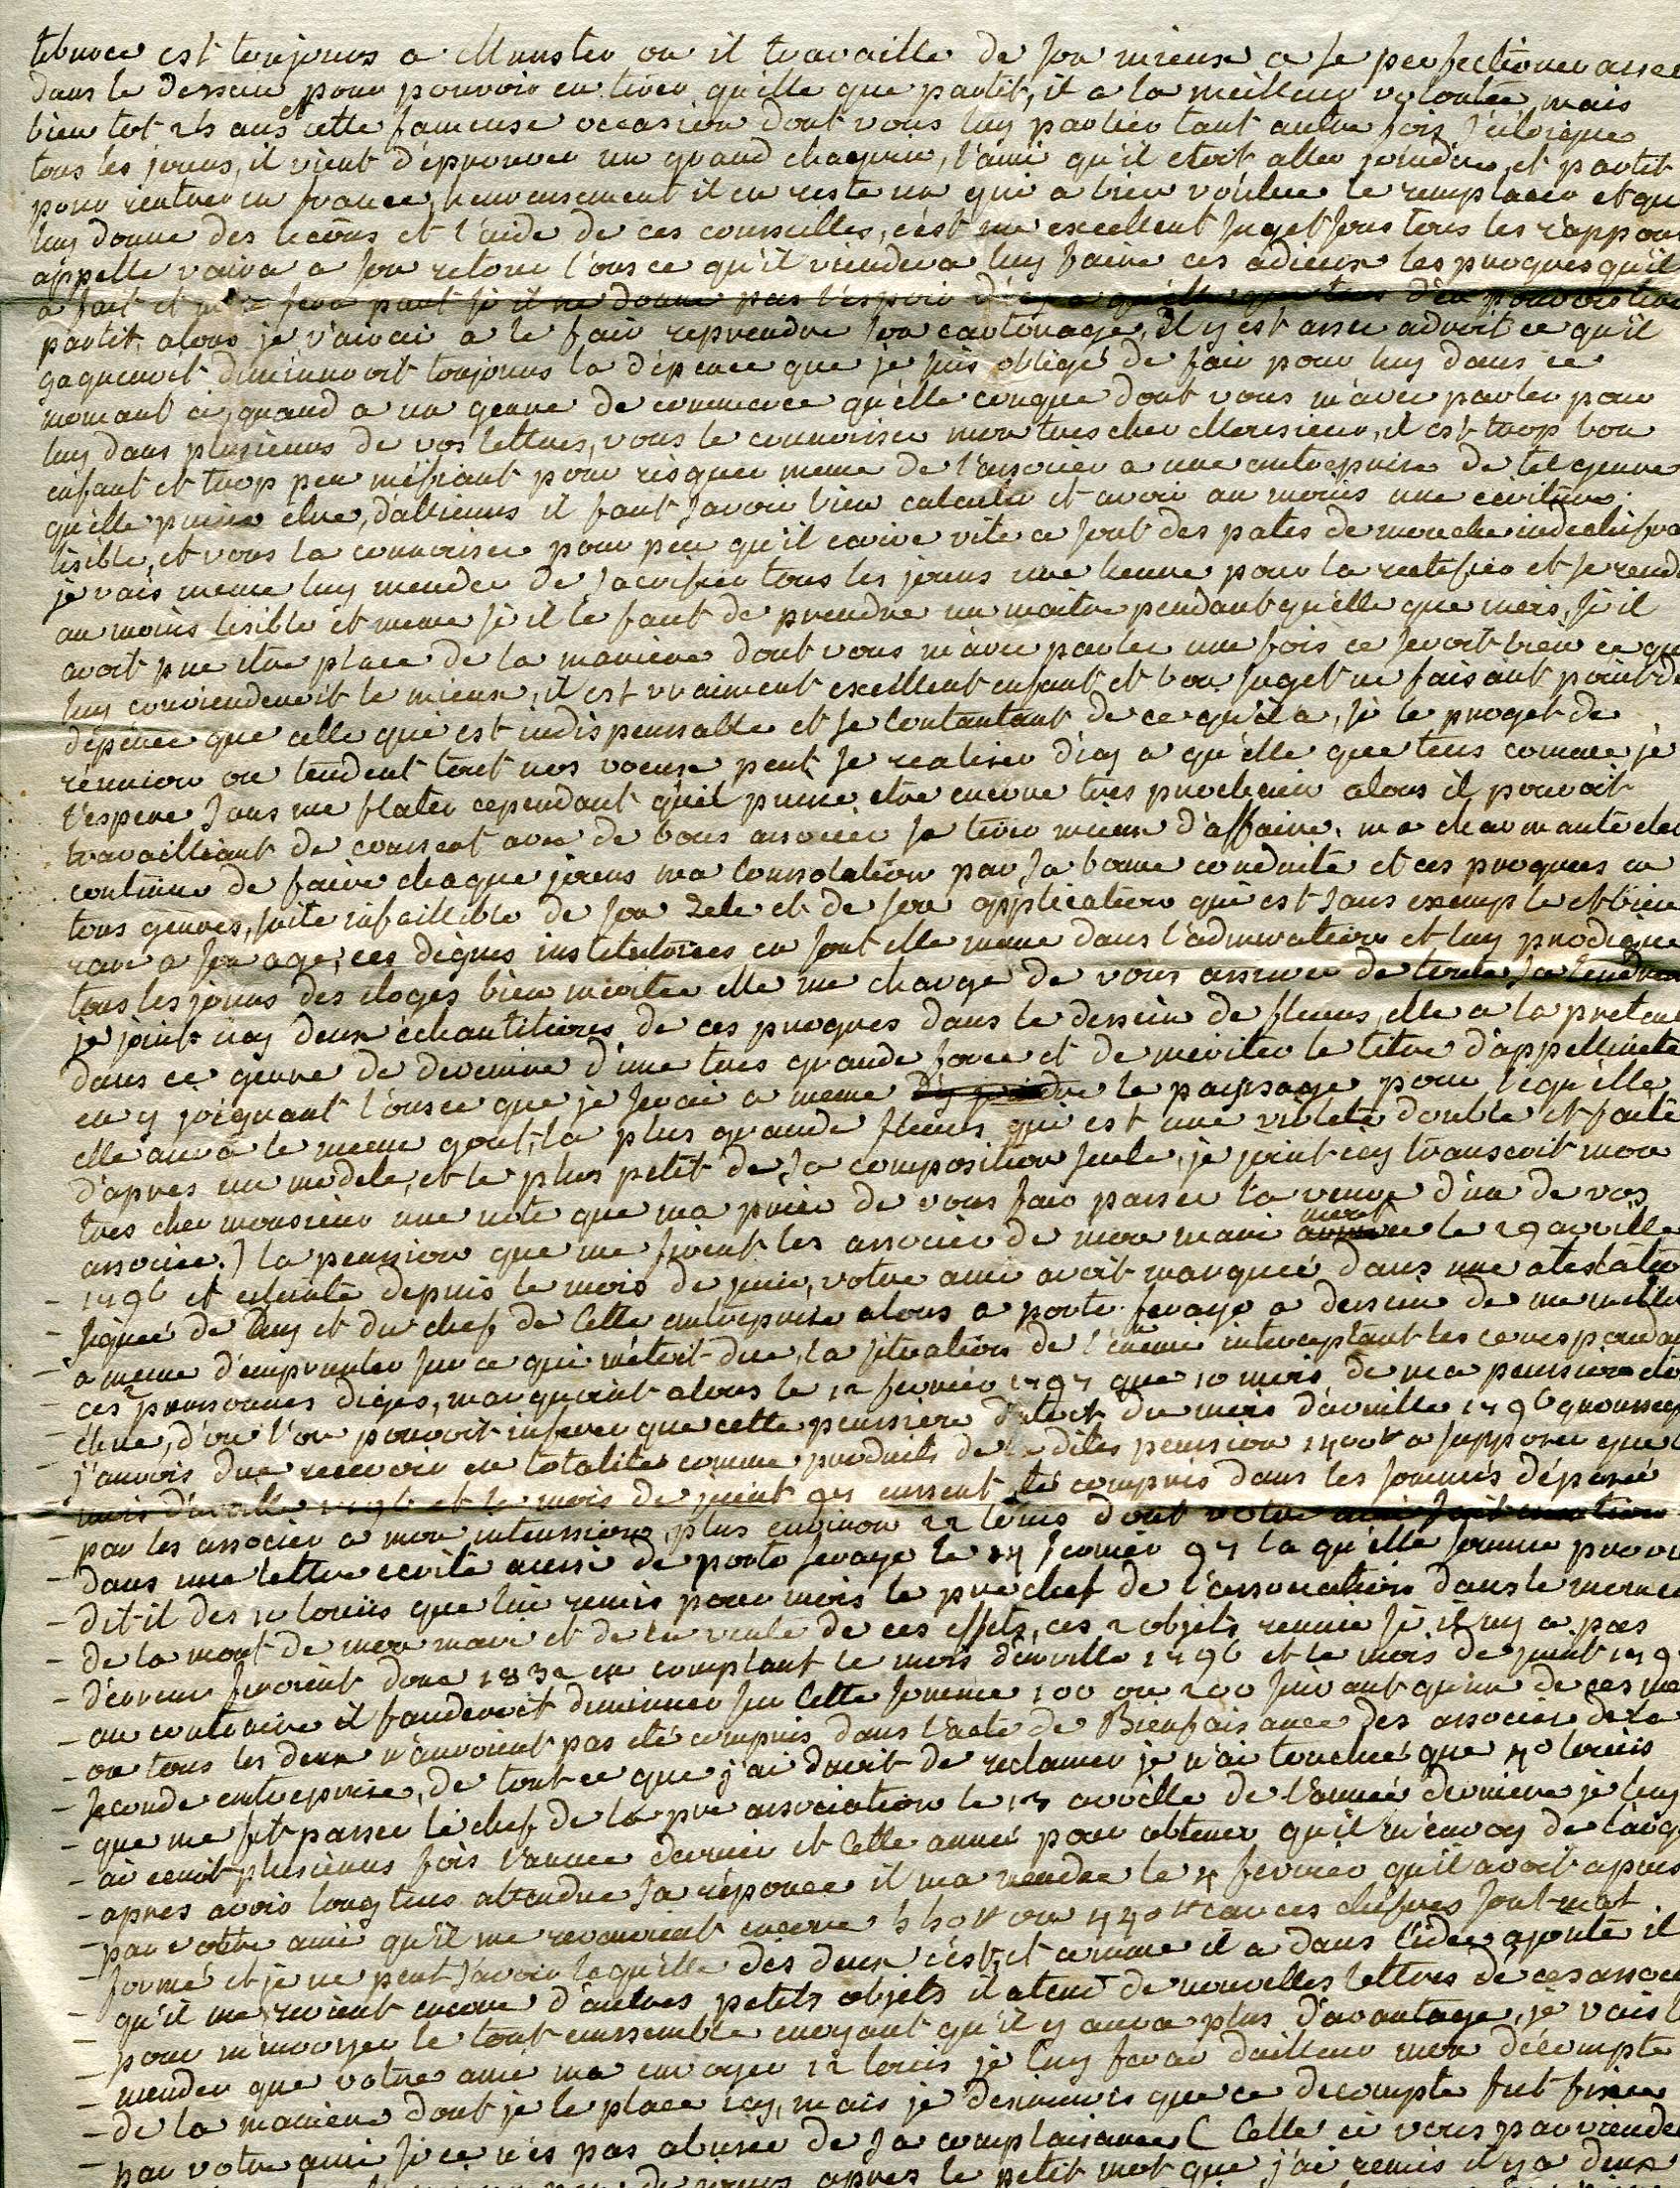 est toujours a Munster ou il travaille de son mieux a se perfectionner asse
dans le dessein pour pouvoir en tirer quelle que partit, il a la meilleur volontée, mais
bien tot 25 ans et cette fameuse occasion dont vous luy parliéz tant autre fois s'éloigne
tous les jours, il vient d'éprouver un grand chagrin, l'ami qu'il etoit aller joindre, et partit
pour rentrer en france, heureusement il en reste un qui a bien voulue le remplacer et qu
luy donne des lecons et l'aide de ces conseilles, c'est un excellent sujet sous tous les rappor
appelle a son retour l'ons ce qu'il viendera luy faire ces adieux les progres qu'il
a fait et sera pant si il ne donne pas l'espoir d'en pouvoir tire
partit, alors je l'airai a le fair reprendre son cartonage, il y est asse adroit ce qu'il
gagneroit diminueroit toujours la dépence que je suis obligé de fair pour luy dans ce
momant ci, quand a un genre de commerce qu'elle conque dont vous m'avéz parler pour
luy dans plusieurs de vos lettres, vous le connoisséz mon tres cher Monsieur, il est trop bon
enfant et trop peu méfiant pour risquer meme de l'associer a une entreprise de tel genre
qu'elle puisse etre, d'allieurs il faut savoir bien calculer et avoir au moins une écriture
lisible, et vous la connoisséz pour peu qu'il ecrive vite ce sont des pates de mouche indechifra
je vais meme luy mender de sacrifier tous les jours une heure pour la rectifier et se rend
au moins lisible et meme si il le faut de prendre un maitre pendant qu'elle que mois, si il
avoit pue etre place de la maniere dont vous m'avéz parler une fois ce seroit bien ce qu
luy conviendenoit le mieux, il est vraiment excellent enfant et bon suget ne faisant point de
dépence que celle qui est indispensable et se contantant de ce qu'il a, si le proget de
réunion ou tendent tout nos voeux peut se realiser d'icy a qu'elle que tems comme je
l'espere sans me flater cependant qu'il puisse etre encore tres prochain alors il pouroit
travailliant de consert avec de bons associér se tirer mieux d'affaire, ma charmante
continue de faire chaque jours ma consolation par sa bonne conduite et ces progres en
tous genres, suite infaillible de son zele et de son application qui est sans exemple et bien
rare a son age, ces dignes institutrices en sont elle meme dans l'admiration et luy prodigue
tous les jours des eloges bien meritée elle me charge de vous assurer de toute sa tendre
je joint icy deux échantilions de ces progres dans le dessein de fleurs, elle a la preten
dans ce genre de devenire d'une tres grande force et de meriter le titre d'appellineta
en y joignant l'onsce que je serai a meme le paysage pour l'equ'elle
elle aura le meme gout, la plus grande fleurs qui est une violete double et faite
d'apres un modele, et le plus petit de sa composition seule, je joint icy transcrit mon
tres cher monsieur une note que ma priée de vous fair passer la veuve d'un de vos
associée.) la pension que me firent les associér de mon mari mort le 29 avrille
- 1796 et eteinte depuis le mois de juin, votre ami avoit marquée dans une atestatio
- signée de luy et du chef de cette entreprise alors a porto feraÿo a dessein de me mettre
- a meme d'emprunter sur ce qui m'étoit due, la situation de l'énemi interceptant les corespondan
- ces personnes diges, marquoint alors le 12 fevrier 1797 que 10 mois de ma pension
- chue, d'ou l'on pouvoit inferer que cette pension datoit du mois d'avrille 1796
- j'aurois due recevoir en totalité comme produits de la dites pension 1400# a supposer que
- mois d'avrille 1796 et le mois de juint 97 eussent été compris dans les sommes déposée
- par les associér a mon intenssion, plus environ 22 louis dont votre ami fait mention
- dans une lettre ecrite aussi de porto feraÿo le fevrier 97 la qu'elle somme provi
- dit-il des 12 louiis que lui remis pour mois le pre chef de l'association dans le momen
- de la mort de mon mari et de la vente de ces effets, ces 2 objets reunie si il ny a pas
- d'erreur feroient donc 1832 en comptant le mois d'avrille 1796 et le mois de juint 179
- au contraire il fauderoit diminuer sur cette somme 100 ou 200 suivant qu'un de ces mo
- ou tous les deux n'auroient pas été compris dans l'acte de Bienfaisance des associér de la
- seconde entreprise, de tout ce que j'ai droit de reclamer je n'ai touchée que 40 louis
- que me fit passer le chef de la pre association le 13 avrille de l'année derniere je luy
- ai ecrit plusieurs fois l'annee dernier et cette année pour obtener qu'il m'envoy de l'arg
- apres avoir longtems attendue sa réponce il ma mendée le 4 fevrier qu'il avoit apris
- par votre ami qu'il me revenoient encore 550# ou 440# car ces chifres sont mal
- formé et je ne peut savoir laqu'elle des deux c'est, et comme il a dans l'idée ajouté il
- qu'il me revient encore d'autres petits objets il atend de nouvelles lettres de ces associ
- pour m'envoyer le tout enssemble croyant qu'il y aura plus d'avantage, je vais l
- mender que votre ami ma envoyer 12 louis je luy ferai dailleur mon décompte
- de la maniere dont je le place icy, mais je desirerois que ce decompte fut fixée
- par votre ami si ce n'es pas abusée de sa complaisance ( Celle ci vous parviendera
apres le petit mot que j'ai remis il y a deux